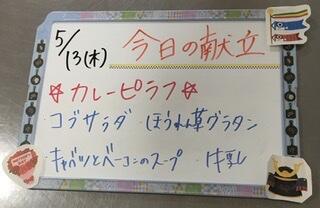 5/13(木) 今日の献立
☆カレーピラフ☆
・コブサラダ ・ほうれん草グラタン
・キャベツとベーコンのスープ ・牛乳